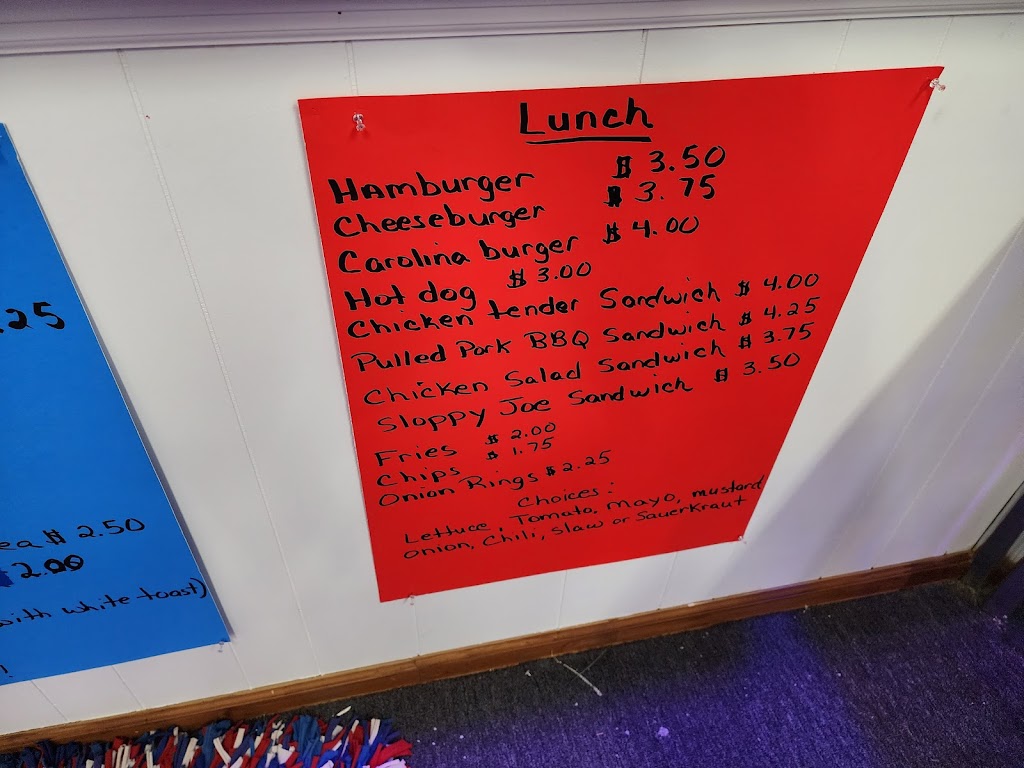 Lunch
Hamburger $ 3.50
Cheeseburger $ 3.75
Carolina burger $ 4.00
Hot dog $ 3.00
Chicken tender Sandwich $ 4.00
Pulled Pork BBQ Sandwich $ 4.25
Chicken Salad Sandwich $ 3.75
Sloppy Joe Sandwich $ 3.50
Fries $ 2.00
Chips $ 1.75
Onion Rings $ 2.25
Choices:
Lettuce, Tomato, mayo, mustard
onion, Chili, slaw or Sauerkraut
.25
$ 2.50
2.00
with white toast)
!